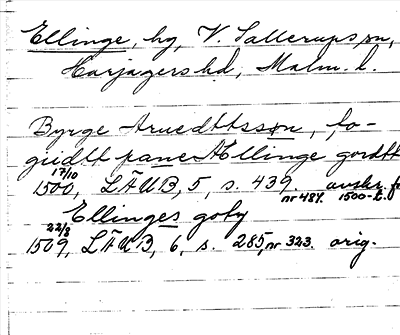 Ellinge, hg, V. Sallerups sn,
Harjagers hd, Malm. l.
Byrge Aruedttssøn, fo-
guidtt paner Ællinge gordtt
17/10
1500, LÄUB, 5, s. 439. avskr. fr.
nr 484. 1500-t.
Ellinges gotz
22/8
1509, LÄUB, 6, s. 285, nr 323. orig.